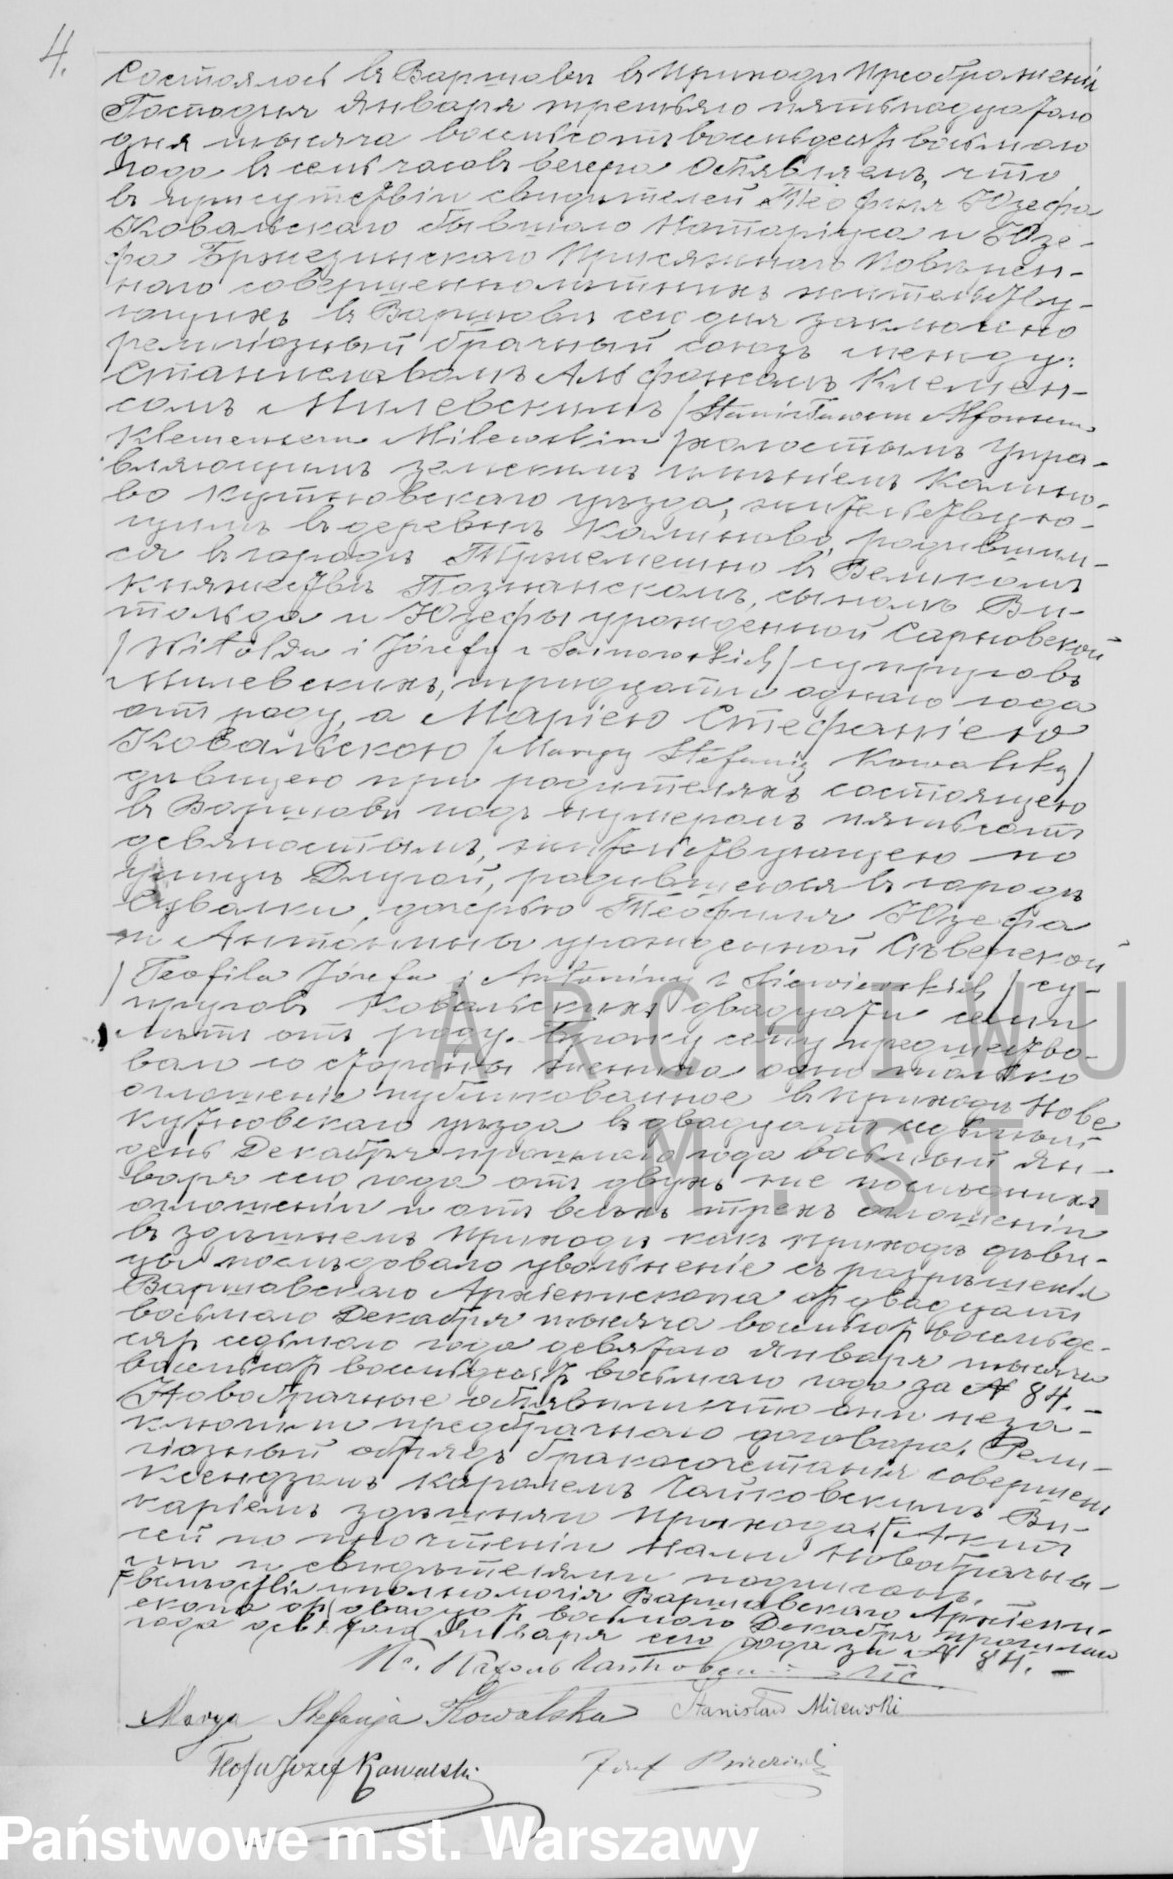 4.
Состоялось въ Варшавѣ въ Приходѣ Преображенія
Господня Января третьяго пятьнадцатаго
дня тысяча восемьсотъ восемьдесятъ восьмаго
года въ семь часовъ вечера Объявляемъ, что
въ присутствіи свидѣтелей Теофиля Юзефа
Ковальскаго бывшаго Нотаріуса и Юзе-
фа Бржезинскаго Присяжнаго Повѣрен-
наго совершеннолѣтнихъ жительству-
ющихъ въ Варшавѣ сего дня заключено
религіозный брачный союзъ между:
Станиславомъ Альфонсомъ Клемен-
сомъ Милевскимъ /Stanisławem Alfonsem
Klemensem Milewskim/ холостымъ Упра-
вляющимъ земскимъ имѣніемъ Калино-
во Кутновскаго уѣзда, жительствую-
щимъ въ деревнѣ Калиново, родившим-
ся въ городѣ Тржемешно въ Великомъ
Княжествѣ Познанскомъ, сыномъ Ви-
тольда и Юзефы урожденной Сарновской
/Witolda i Józefy z Sarnowskich/ супруговъ
Милевскихъ, тридцати одного года
отъ роду, а Маріею Стефаніею
Ковальскою /Maryą Stefanią Kowalską/
дѣвицею при родителяхъ состоящею
въ Варшавѣ подъ нумеромъ пятьсотъ
девяностымъ, жительствующею по
улицѣ Длугой, родившеюся въ городѣ
Сувалки, дочерью Теофиля Юзефа
и Антонины урожденной Сѣверской
/Teofila Józefa i Antoniny z Siewierskich/ су-
пруговъ Ковальскихъ двадцати семи
лѣтъ отъ роду. Браку сему предшество-
вало со стороны жениха одно только
оглашеніе публикованное въ Приходѣ Нове
Кутновскаго уѣзда въ двадцать седьмый
день Декабря прошлаго года восьмый Ян-
варя сего года отъ двухъ же послѣднихъ
оглашеній и отъ всѣхъ трехъ оглашеній
въ здѣшнемъ Приходѣ какъ приходѣ дѣви-
цы послѣдовало увольненіе съ разрѣшенія
Варшавскаго Архіепископа отъ двадцать
восьмаго Декабря тысяча восемьсотъ восемьде-
сятъ седьмаго года девятаго Января тысяча
восемьсотъ восемьдесятъ восьмаго года за № 84. –
Новобрачные объявили что они не за-
ключили предбрачнаго договора. Рели-
гіозный обрядъ бракосочетанія совершенъ
Ксендзомъ Каролемъ Чайковскимъ Ви-
каріемъ здѣшняго Прихода. Актъ
сей по прочтеніи Нами Новобрачны-
ми и свидѣтелями подписанъ.
вслѣдствіи полномочія Варшавскаго Архіепи-
скопа отъ двадцать восьмаго Декабря прошлаго
года девятаго Января сего года за № 84. –
Marya Stefanja Kowalska Stanisław Milewski
Teofil Józef Kowalski Józef Brzeziński
ARCHIWUM
M. ST.
Państwowe m.st. Warszawy